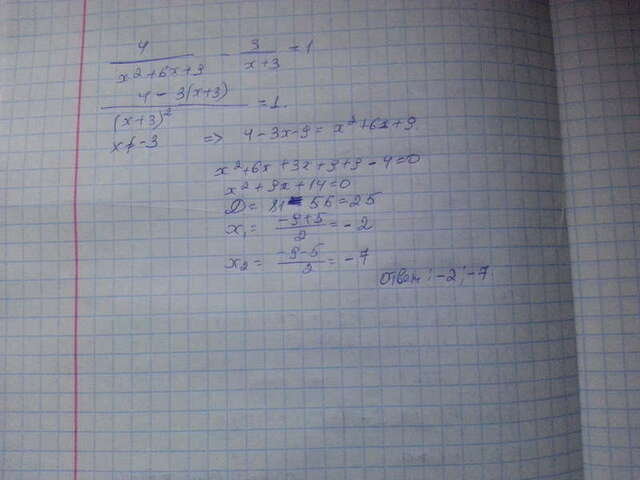 4/(x²+6x+3) - 3/(x+3) = 1
(4-3(x+3))/(x+3)² = 1.
x≠-3 => 4-3x-9 = x²+6x+9
x²+6x+3x+9+9-4=0
x²+9x+14=0
D= 81-56=25
x₁= (-9+5)/2 = -2
x₂= (-9-5)/2 = -7
Ответ: -2; -7.